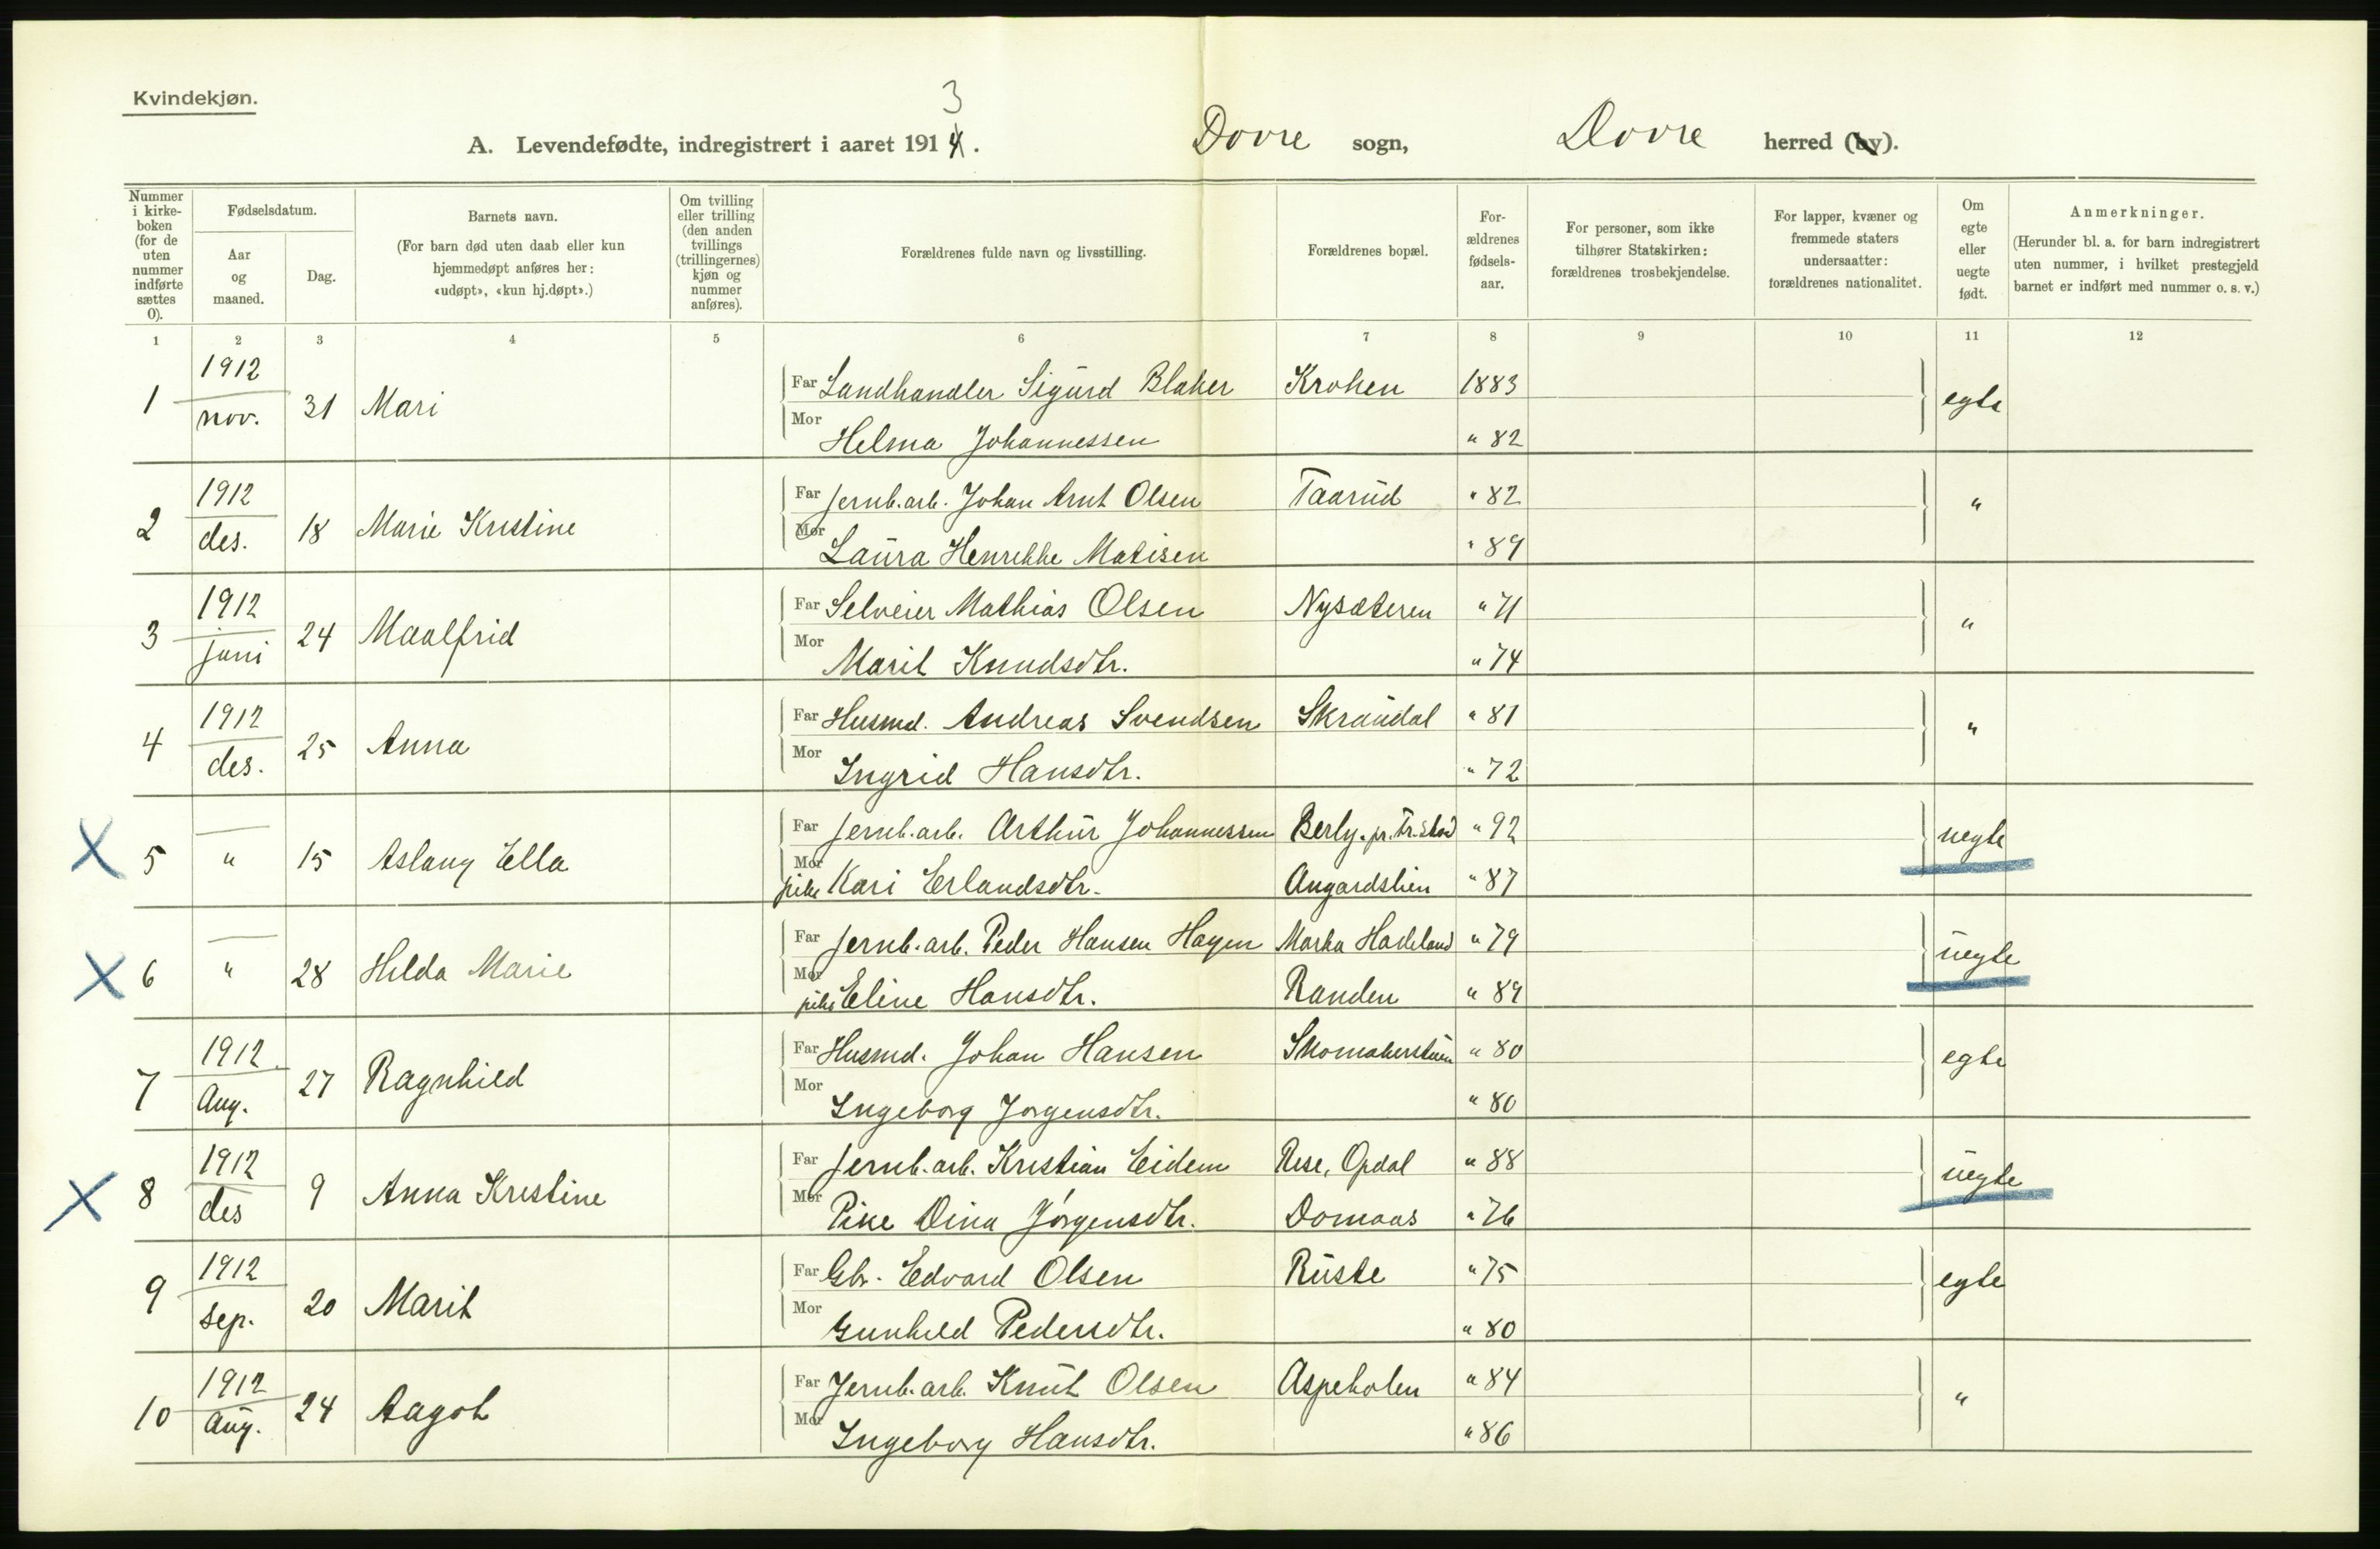 Kvindekjøn.
3
A. Levendefødte, indregistrert i aaret 1914. Dovre sogn, Dovre herred (by).
Nummer i kirke-boken (for de uten nummer indførte sættes 0).
Fødselsdatum.
Aar og maaned.
Dag.
Barnets navn.
(For barn død uten daab eller kun hjemmedøpt anføres her: «udøpt», «kun hj.døpt».)
Om tvilling eller trilling (den anden tvillings (trillingernes) kjøn og nummer anføres).
Forældrenes fulde navn og livsstilling.
Forældrenes bopæl.
For-ældrenes fødsels-aar.
For personer, som ikke tilhører Statskirken: forældrenes trosbekjendelse.
For lapper, kvæner og fremmede staters undersaatter: forældrenes nationalitet.
Om egte eller uegte født.
Anmerkninger.
(Herunder bl. a. for barn indregistrert uten nummer, i hvilket prestegjeld barnet er indført med nummer o. s. v.)
1 2 3 4 5 6 7 8 9 10 11 12
1 1912 nov. 31 Mari Far Landhandler Sigurd Blaker Krohen 1883 egte
Mor Helma Johannessen " 82
2 1912 des. 18 Marie Kristine Far jernb.arb. Johan Arnt Olsen Taarud " 82 "
Mor Laura Henrikke Matisen " 89
3 1912 juni 24 Maalfrid Far Selveier Mathias Olsen Nysæteren " 71 "
Mor Marit Knudsdtr. " 74
4 1912 des. 25 Anna Far Husmd. Andreas Svendsen Skraudal " 81 "
Mor Ingrid Hansdtr. " 72
X 5 " 15 Aslaug Ella Far jernb.arb. Arthur Johannessen Berly. pr. Tr.stad " 92 uegte
Mor pike Kari Erlandsdtr. Angardslien " 87
X 6 " 28 Hilda Marie Far jernb.arb. Peder Hansen Hagen Marka Hadeland " 79 uegte
Mor pike Eline Hansdtr. Randen " 89
7 1912 Aug. 27 Ragnhild Far Husmd. Johan Hansen Skomakerstuen " 80 egte
Mor Ingeborg Jorgensdtr. " 80
X 8 1912 des 9 Anna Kristine Far jernb.arb. Kristian Eidem Rise, Opdal " 88 uegte
Mor Pike Dina Jörgensdtr. Domaas " 76
9 1912 sep. 20 Marit Far Gbr. Edvard Olsen Ruste " 75 egte
Mor Gunhild Pedersdtr. " 80
10 1912 Aug. 24 Aagot Far Jernb.arb. Knut Olsen Aspeholen " 84 "
Mor Ingeborg Hansdtr. " 86